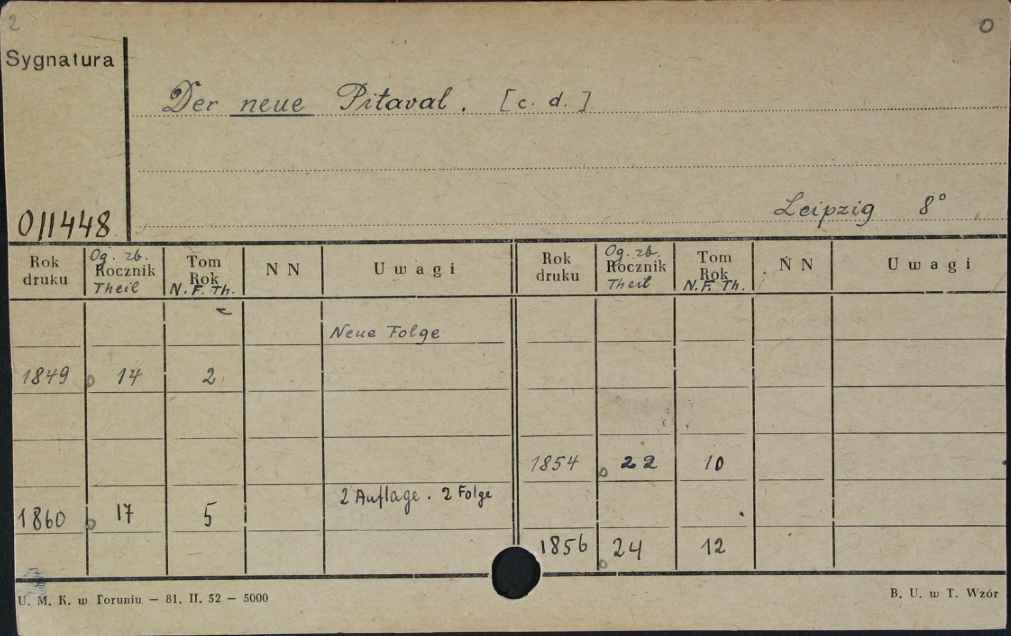 2
0
Sygnatura
Der neue Pitaval. [c. d.]
Leipzig 8°
011448
Rok druku
Og. zb. Rocznik Theil
Tom Rok N. F. Th.
N N
Uwagi
Rok druku
Og. zb. Rocznik Theil
Tom Rok N. F. Th.
N N
Uwagi
Neue Folge
1849 14 2
1854 22 10
2 Auflage. 2 Folge
1860 17 5
1856 24 12
U. M. K. w Toruniu – 81. II. 52 – 5000
B. U. w T. Wzór